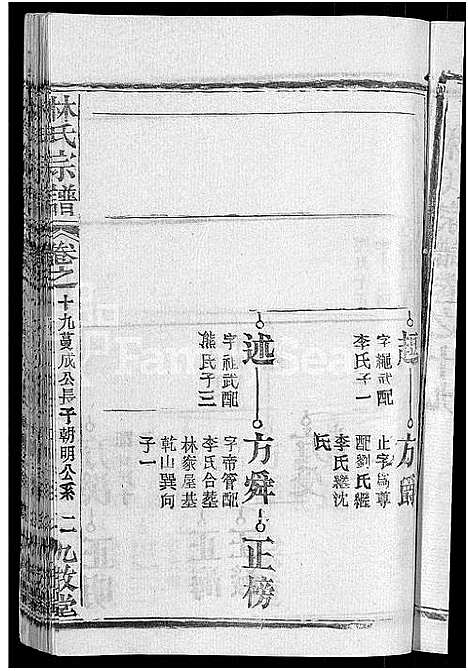 起
字繩武配
李氏子一
方爵
止字為尊
配劉氏繼
李氏繼沈
氏
述
字祖武配
熊氏子三
方舜
字帝管配
李氏合塟
林家屋基
乾山巽向
子一
正榜
林氏宗譜
卷之
十九
萬成公長子朝明公系
二
九牧堂